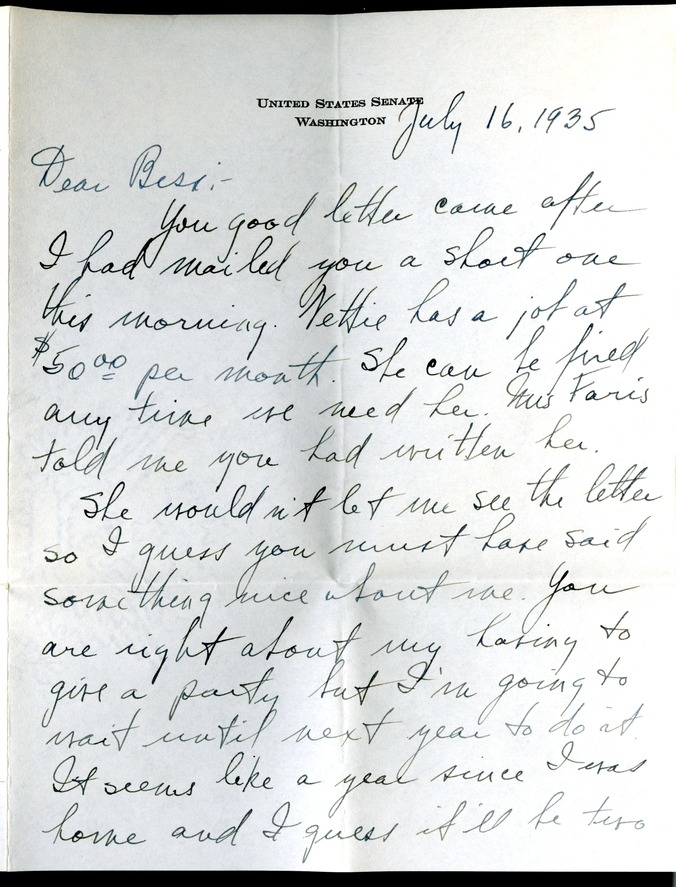 UNITED STATES SENATE
WASHINGTON
July 16, 1935
Dear Bess:-
You good letter came after
I had mailed you a short one
this morning. Nettie has a job at
$50.00 per month. She can be fired
any time we need her. Mrs Faris
told me you had written her.
She wouldn't let me see the letter
so I guess you must have said
something nice about me. You
are right about my having to
give a party but I'm going to
wait until next year to do it.
It seems like a year since I was
home and I guess it'll be two